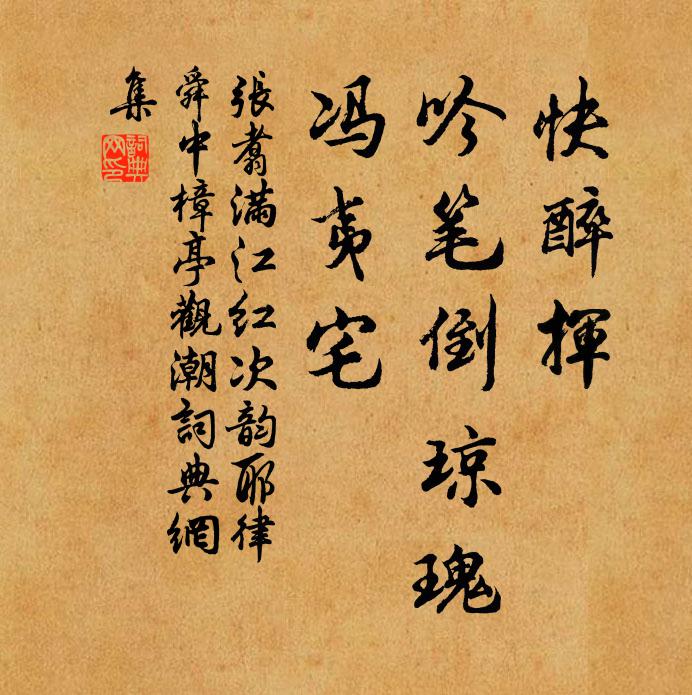 快醉揮
吟笔倒琼瑰
冯夷宅
張翥滿江红次韵耶律
舜中樟亭觀潮詞典網
集
詞典网印